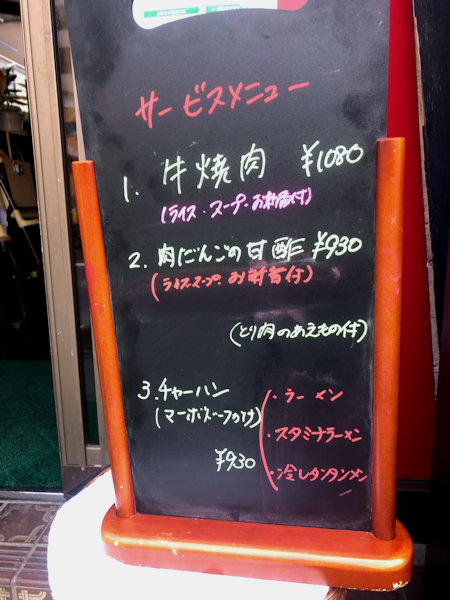 サービスメニュー
1. 牛焼肉 ¥1080
(ライス・スープ・お新香付)
2. 肉だんごの甘酢 ¥930
(ライス・スープ・お新香付)
(とり肉のあえもの付)
3. チャーハン
(マーボドーフかけ)
¥930
・ラーメン
・スタミナラーメン
・冷しタンタンメン